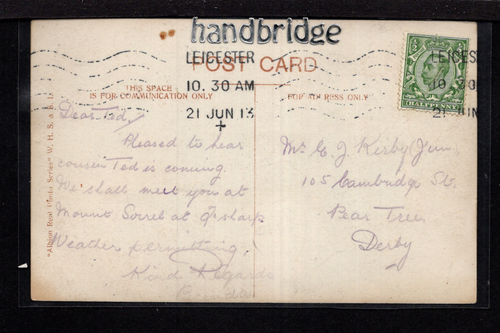 handbridge
POST CARD
LEICESTER
10. 30 AM
21 JUN 13
LEICES
10 30
21 JUN
HALFPENNY
THIS SPACE
IS FOR COMMUNICATION ONLY
FOR ADDRESS ONLY
Dear Ted,
Pleased to hear
cousin Ted is coming.
We shall meet you at
Mount Sorrel at sharp
Weather permitting.
Kind Regards
Mr C J Kirby Jun.
105 Cambridge St.
Pear Tree
Derby
Series" W. H. S. & S.